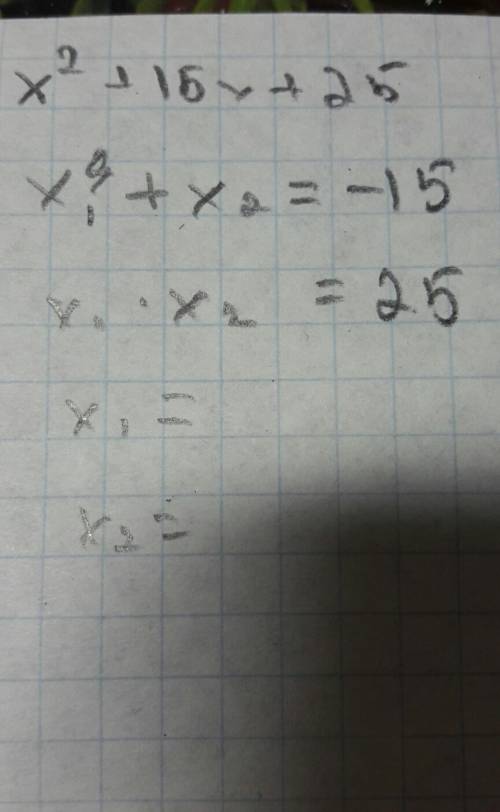 x² + 15x + 25
x₁ + x₂ = -15
x₁ · x₂ = 25
x₁ =
x₂ =